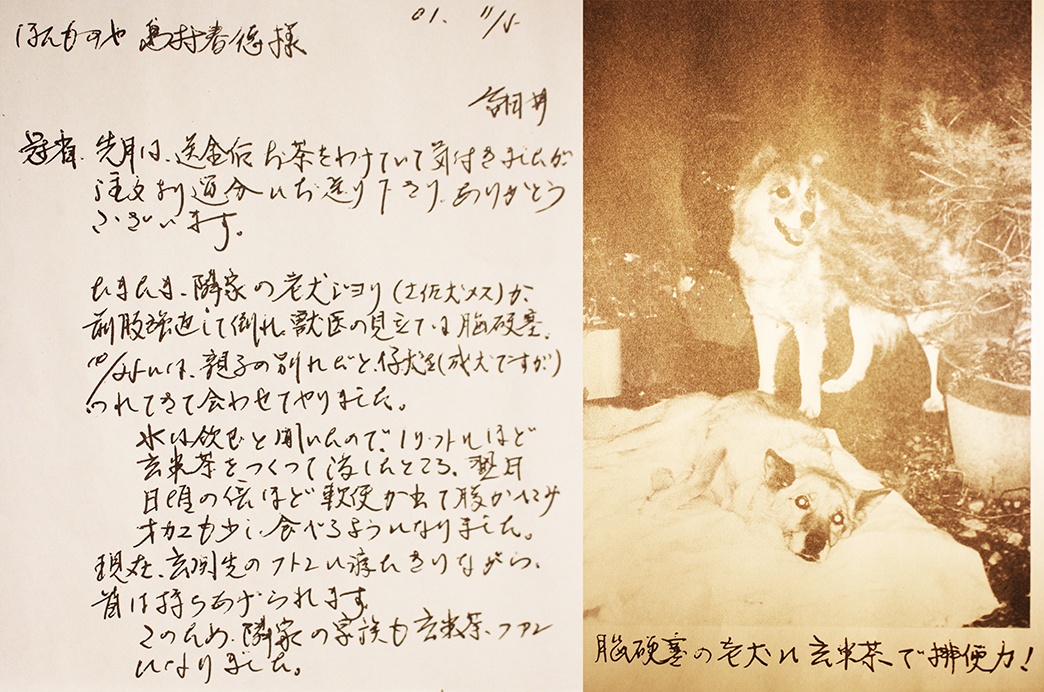 01. 11/5
ほんものや 島村春徳様
冠省、先月は、送金后お茶をわけていて気付きましたが
注文より過分にお送り下さり、ありがとう
ございます。
たまたま、隣家の老犬ジヨリ(土佐犬メス)が、
前肢強直して倒れ、獣医の見立ては脳硬塞。
には、親子の別れと、仔犬を(成犬ですが)
つれてきて会わせてやりました。
水は飲むと聞いたので、1リットルほど
玄米茶をつくって渡したところ、翌日
日頃の倍ほど軟便が出て腹がへこみ
オカユも少し食べるようになりました。
現在、玄関先のフトンに寝たきりながら、
首は持ちあげられます。
このため、隣家の家族も玄米茶、ファン
になりました。
脳硬塞の老犬に玄米茶で排便力!